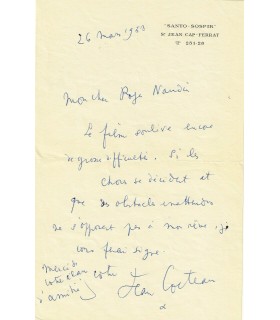 "SANTO-SOSPIR"
ST JEAN-CAP-FERRAT
251-28
26 Mars 1953
Mon cher Roger
Le film soulève encore
de grosses difficultés. Si les
choses se décident et
que des obstacles inattendus
ne s'opposent pas à mon rêve, je
vous ferai signe.
Merci de
votre
d'amitié
Jean Cocteau